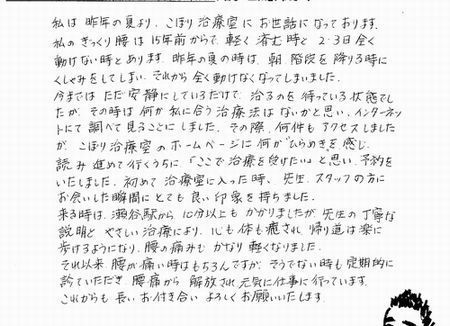 私は 昨年の夏より、こぼり治療室に お世話になっております。
私の ぎっくり腰は 15年前からで、軽く済む時と 2・3日全く
動けない時とあります。昨年の夏の時は、朝 階段を降りる時に
くしゃみをしてしまい、それから全く動けなくなってしまいました。
今までは ただ安静にしているだけで、治るのを待っている状態でし
たが、その時は何か私に合う治療法はないかと思い、インターネッ
トにて調べて見ることにしました。その際、何件もアクセスしました
が、こぼり治療室のホームページに何か“ひらめき”を感じ、
読み進めて行くうちに「ここで治療を受けたい」と思い、予約を
いたしました。初めて治療室に入った時、先生、スタッフの方に
お会いした瞬間に とても良い印象を持ちました。
来る時は、瀬谷駅から10分以上もかかりましたが、先生の丁寧な
説明と やさしい治療により、心も体も癒され 帰り道は楽に
歩けるようになり、腰の痛みも かなり軽くなりました。
それ以来、腰が痛い時はもちろんですが、そうでない時も定期的に
診ていただき、腰痛から 解放され 元気に仕事に行っています。
これからも 長いお付き合い よろしくお願いいたします。